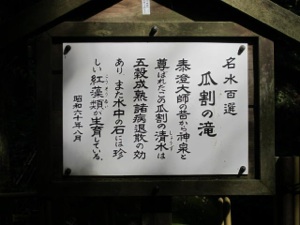 名水百選
瓜割の滝
泰澄大師の昔から神泉と
尊ばれたこの瓜割の清水は
五穀成熟諸病退散の効
あり また水中の石には珍
しい紅藻類が生育している。
昭和六十年八月